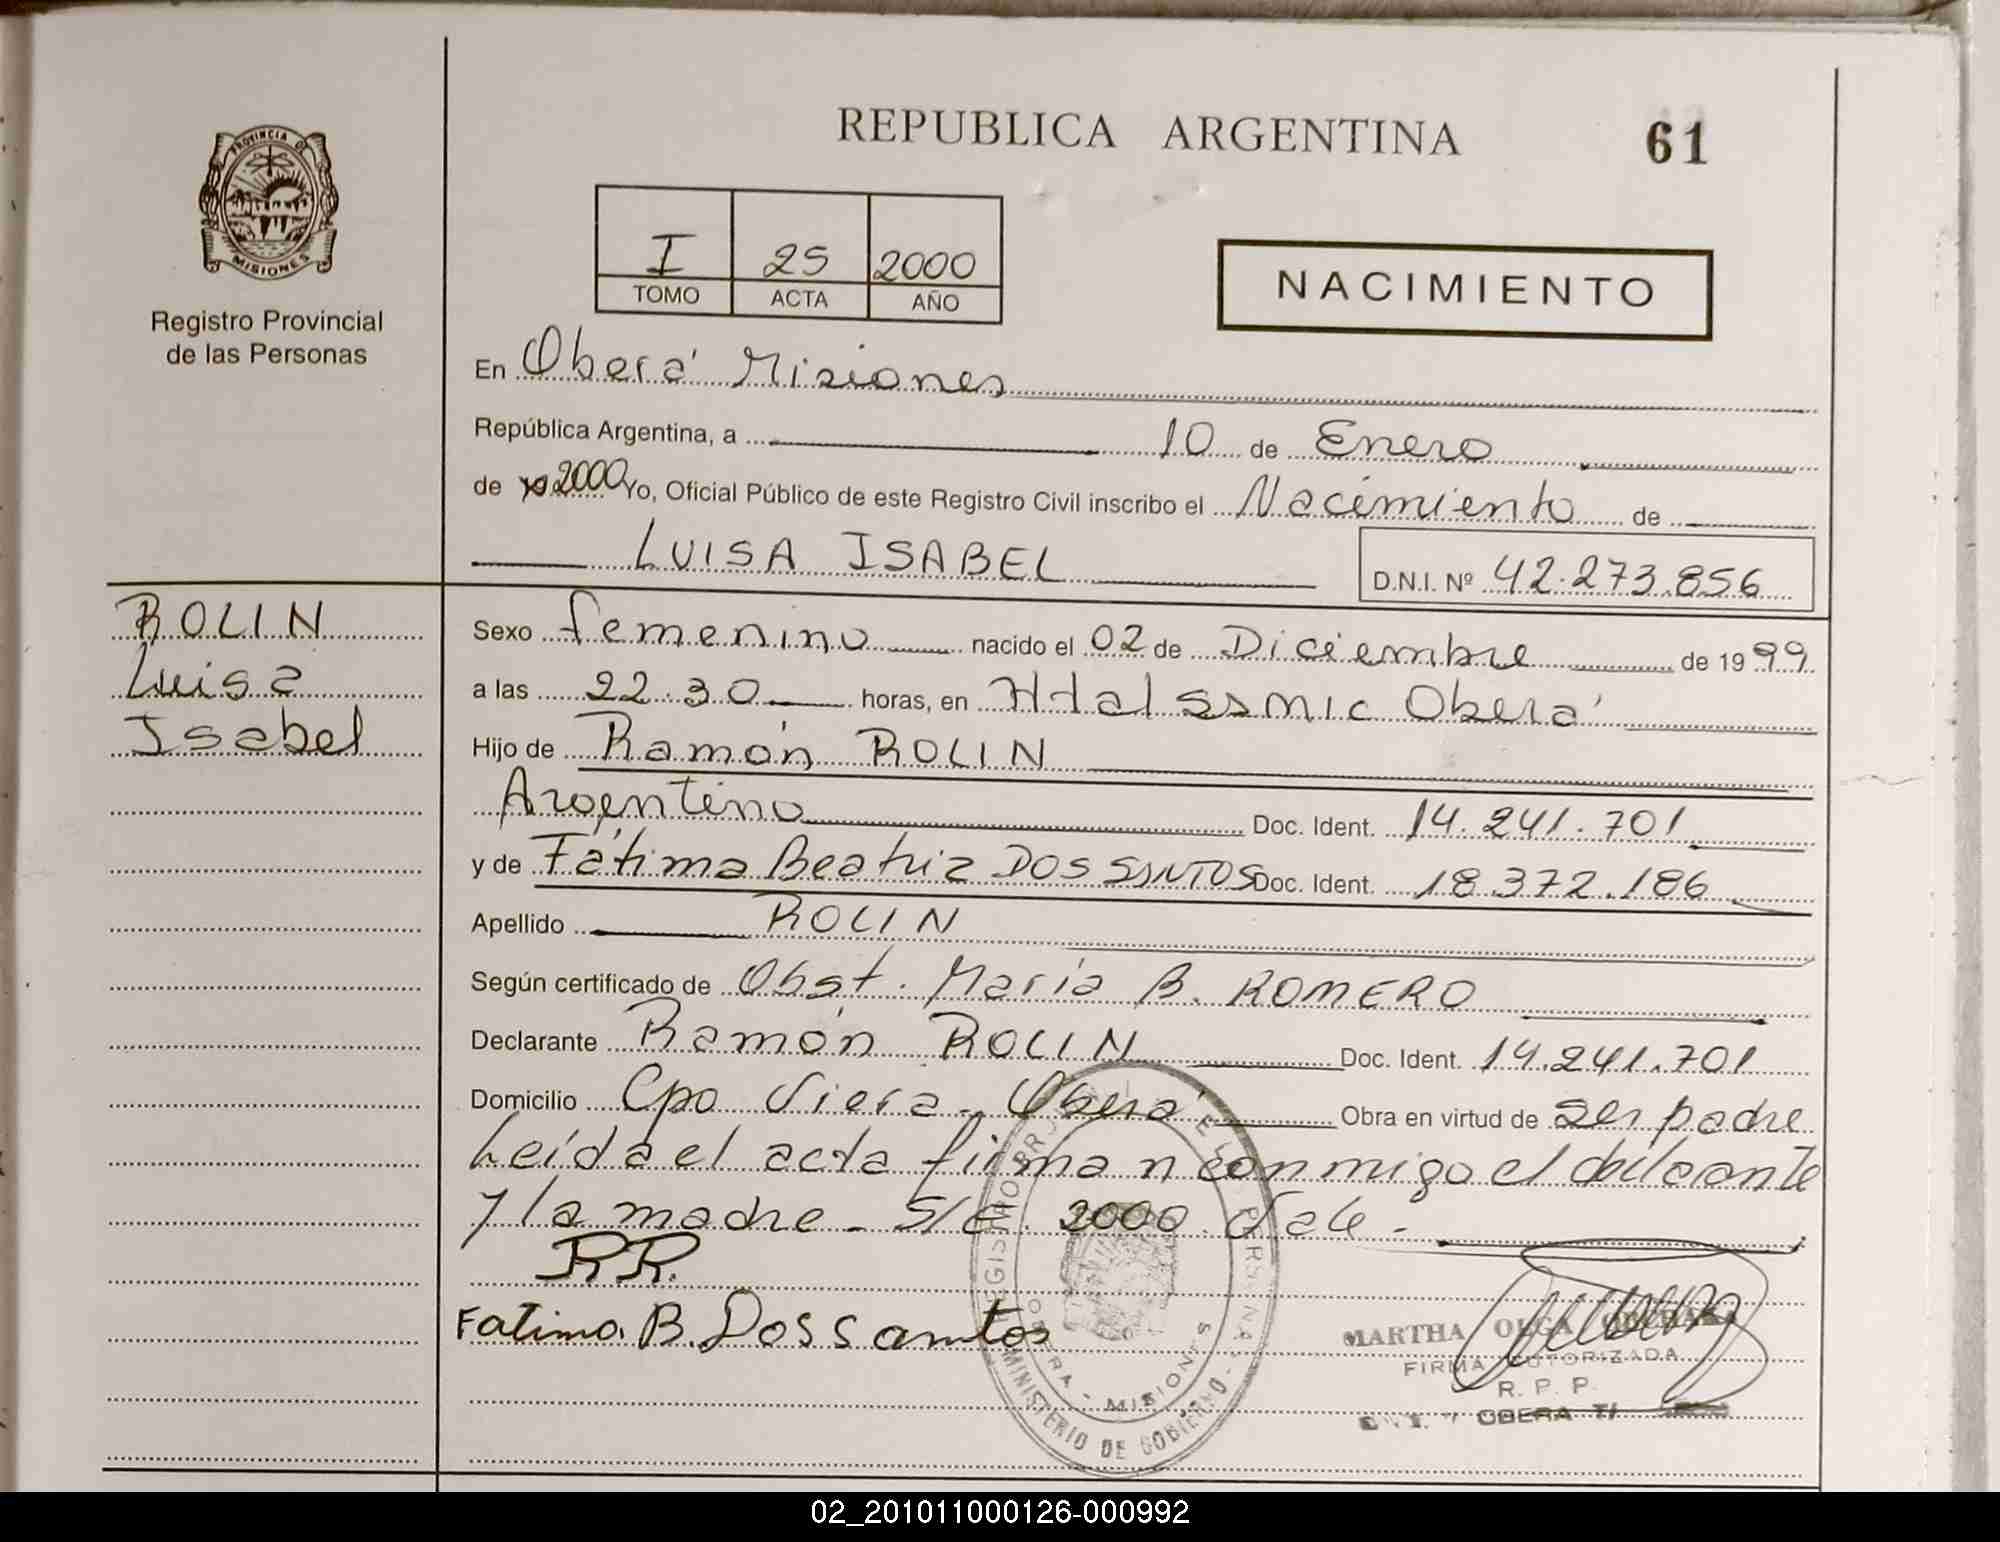 REPUBLICA ARGENTINA 61
PROVINCIA DE MISIONES
Registro Provincial
de las Personas
I 25 2000
TOMO ACTA AÑO
NACIMIENTO
En Oberá Misiones
República Argentina, a 10 de Enero
de 2000 Yo, Oficial Público de este Registro Civil inscribo el Nacimiento de
LUISA ISABEL D.N.I. Nº 42.273.856
ROLIN
Luisa
Isabel
Sexo femenino nacido el 02 de Diciembre de 1999
a las 22.30 horas, en Htal SSMIC Oberá
Hijo de Ramón ROLIN
Argentino Doc. Ident. 14.241.701
y de Fátima Beatriz DOS SANTOS Doc. Ident. 18.372.186
Apellido ROLIN
Según certificado de Obst. María B. ROMERO
Declarante Ramón ROLIN Doc. Ident. 14.241.701
Domicilio Cpo Viera - Oberá Obra en virtud de ser padre
Leída el acta firman conmigo el declarante
y la madre - S/C. 2000 Vale -
RR.
Fatima. B. Dos Santos
MARTHA OLGA
FIRMA AUTORIZADA
R. P. P.
OBERA
OBERA - MISIONES
MINISTERIO DE GOBIERNO
02_201011000126-000992